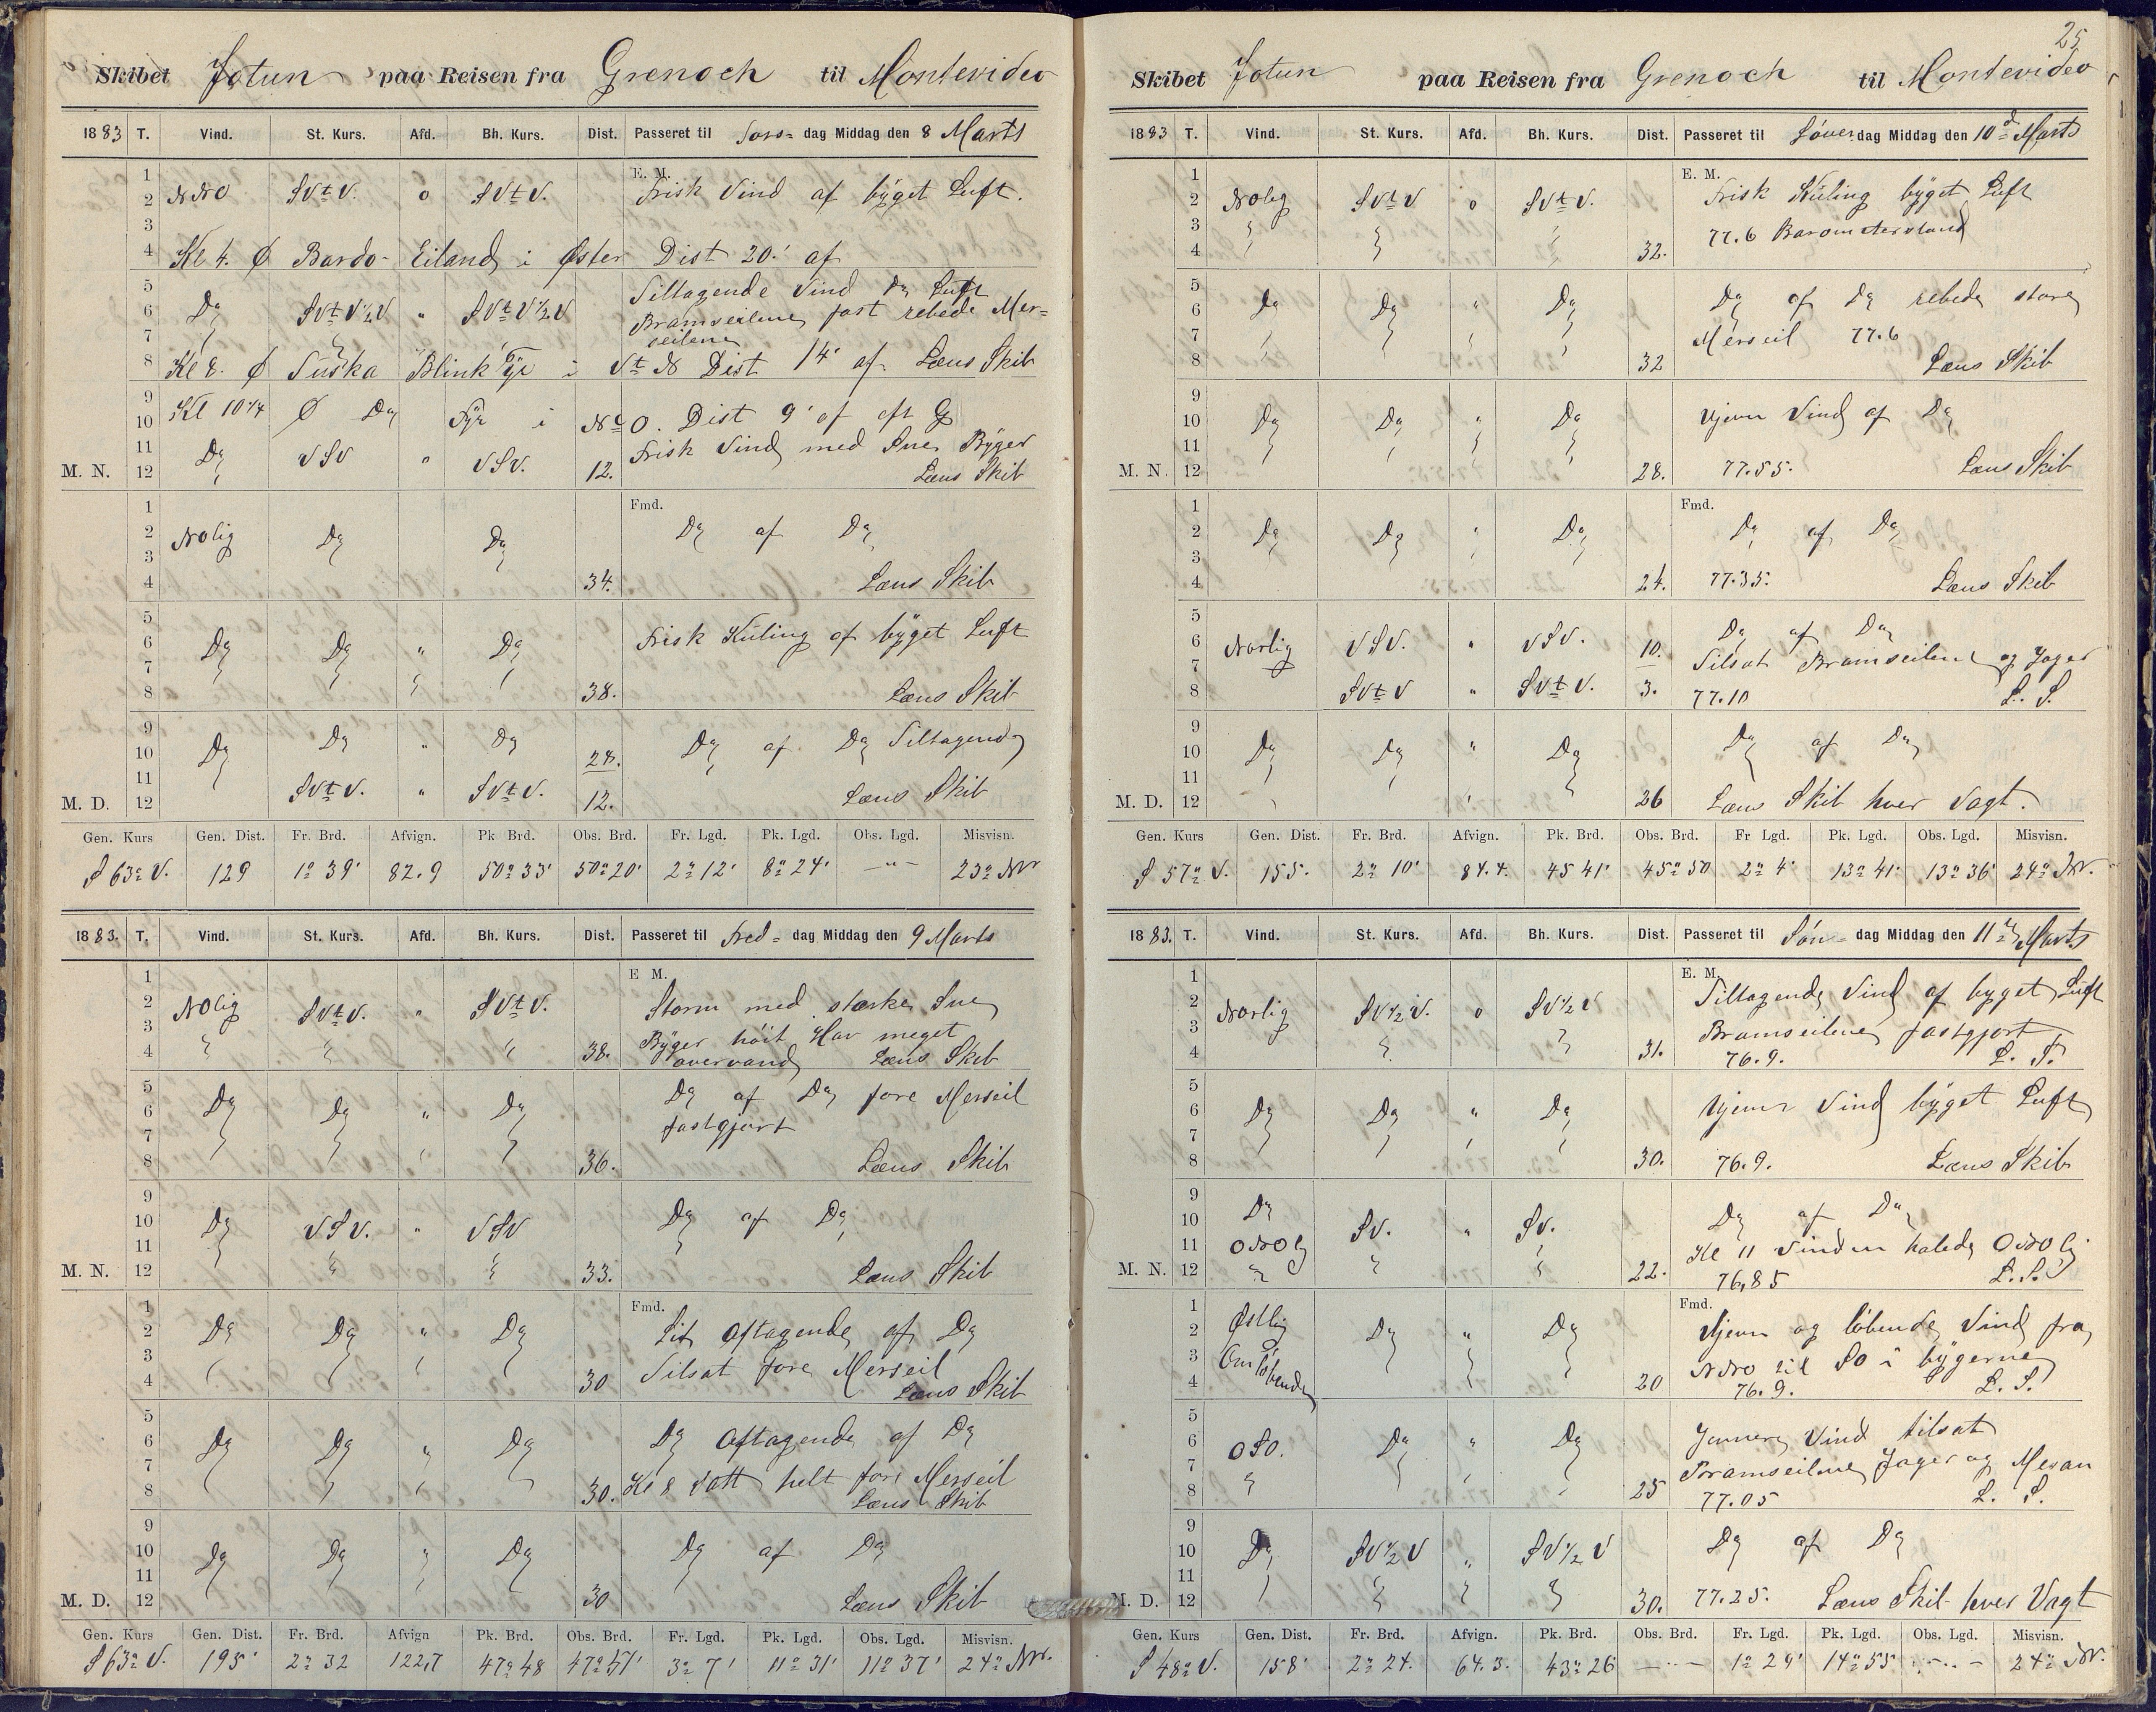 Skibet Jotun paa Reisen fra Grenoch til Montevideo
1883 T. Vind. St. Kurs. Afd. Bh. Kurs. Dist. Passeret til Tors= dag Middag den 8 Marts
E. M.
1
2 NNO SVtV. o SVtV. Frisk Vind af bÿget Luft.
3
4 Kl 4. Ø Bardo- Eiland i Øster Dist 20.' af
5 Tiltagende Vind Do Luft
6 Do SVtV½V " SVtV½V Bramseilene fast rebede Mer=
7 seilene
8 Kl 8. Ø Tuska Blink Fÿr i VtN Dist 14' af Læns Skib
9 Kl 10¼ Ø Do Fÿr i
10 NtO. Dist 9' af
11 Do VSV " VSV. Frisk Vind med Sne Bÿger
M. N. 12 12. Læns Skib
Fmd.
1
2 NOlig Do Do Do af Do
3
4 34. Læns Skib
5
6 Do Do " Do Frisk Kuling af bÿget Luft
7
8 38. Læns Skib
9
10 Do Do " Do 24. Do af Do Tiltagende
11
M. D. 12 SVtV. " SVtV. 12. Læns Skib
Gen. Kurs Gen. Dist. Fr. Brd. Afvign. Pk Brd. Obs. Brd. Fr. Lgd. Pk. Lgd. Obs. Lgd. Misvisn.
S 63° V. 129 1° 39' 82.9 50° 33' 50° 20' 2° 12' 8° 24' —"— 23° NV
1883. T. Vind. St. Kurs. Afd. Bh. Kurs. Dist. Passeret til Fred= dag Middag den 9 Marts
E M.
1
2 NOlig SVtV. " SVtV. Storm med stærke Sne
3 Bÿger höit Hav meget
4 38. overvand Læns Skib
5 Do af Do fore Merseil
6 Do Do " Do fastgjort
7
8 36. Læns Skib
9
10 Do VSV. " VSV Do af Do
11
M. N. 12 33. Læns Skib
Fmd.
1
2 Do Do " Do Lit aftagende af Do
3 Tilsat fore Merseil
4 30 Læns Skib
5
6 Do Do " Do Do aftagende af Do
7
8 30. Kl 8 satt helt fore Merseil
Læns Skib
9
10 Do Do " Do Do af Do
11
M. D. 12 30 Læns Skib
Gen. Kurs Gen. Dist. Fr. Brd. Afvign Pk. Brd. Obs. Brd. Fr. Lgd. Pk. Lgd. Obs. Lgd. Misvisn.
S 63° V. 195' 2° 32 122,7 47° 48 47° 57' 3° 7' 11° 31' 11° 37' 24° NV.
25
Skibet Jotun paa Reisen fra Grenoch til Montevideo
1883 T. Vind. St. Kurs. Afd. Bh. Kurs. Dist. Passeret til Löver dag Middag den 10d Marts
E. M.
1
2 NOlig SVtV o SVtV. Frisk Kuling bÿget Luft
3 77.6 Barometerstand
4 32.
5
6 Do Do " Do Do af Do rebede store
7 Merseil 77.6
8 32 Læns Skib
9
10 Do Do " Do Ujevn Vind af Do
11
M. N. 12 28. 77.55. Læns Skib
Fmd.
1
2 Do Do " Do Do af Do
3
4 24. 77.35. Læns Skib
5
6 Norlig VSV. " VSV. 10. Do af Do
7 Tilsat Bramseilene og Jager
8 SVtV " SVtV. 3. 77.10 L. S.
9
10 Do Do " Do Do af Do
11
M. D. 12 26 Læns Skib hver Vagt.
Gen. Kurs Gen. Dist. Fr. Brd. Afvign. Pk. Brd. Obs. Brd. Fr Lgd. Pk. Lgd. Obs. Lgd. Misvisn.
S 57° V. 155. 2° 10' 84.4. 45 41' 45° 50 2° 4' 13° 41' 13° 36' 24° NV.
1883. T. Vind. St. Kurs. Afd. Bh. Kurs. Dist. Passeret til Søn= dag Middag den 11 Marts
E. M.
1
2 Norlig SV½V. o SV½V Tiltagende Vind af byget Luft
3 Bramseilene fastgjort
4 31. 76.9. L. S.
5
6 Do Do " Do Ujevn Vind bÿget Luft
7
8 30. 76.9. Læns Skib
9 Do
10 SV. " SV. Do af Do
11 ONOlg Kl 11 Vinden halede ONOlig
M. N. 12 22. 76,85 L. S.
Fmd.
1 Østlig
2 Do " Do Ujevn og löbende Vind fra
3 Omlöbende NNO til SO i bÿgerne
4 20 76.9. L. S.
5
6 OSO. Do " Do Jevnere Vind tilsat
7 Bramseilene Jager og Mesan
8 25 77.05 L. S.
9
10 Do SV½V " SV½V Do af Do
11
M. D. 12 30. 77.25. Læns Skib hver Vagt
Gen. Kurs Gen. Dist. Fr. Brd. Afvign. Pk. Brd. Obs. Brd. Fr. Lgd. Pk. Lgd. Obs. Lgd. Misvisn.
S 48° V. 158' 2° 24. 64.3. 43° 26 —..— 1° 29' 14° 55 —..— 24° NV.